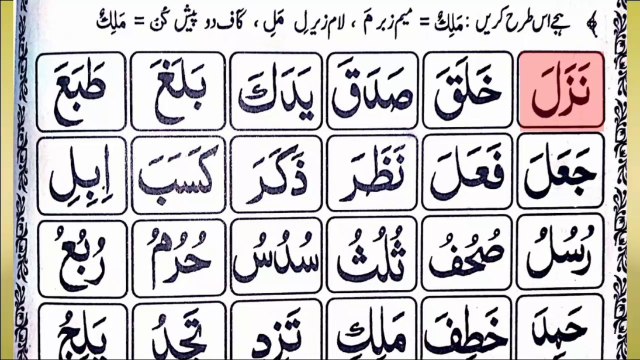 ہجے اس طرح کریں : مَلِكٌ = میم زبر مَ ، لام زیر لِ مَلِ ، کاف دو پیش كٌ = مَلِكٌ
نَزَلَ خَلَقَ صَدَقَ يَدَكَ بَلَغَ طَبَعَ
جَعَلَ فَعَلَ نَظَرَ ذَكَرَ كَسَبَ اِبِلِ
رُسُلُ صُحُفُ ثُلُثُ سُدُسُ حُرُمُ رُبُعُ
حَمِدَ خَطِفَ مَلِكِ تَزِدِ تَجِدُ يَلِجُ